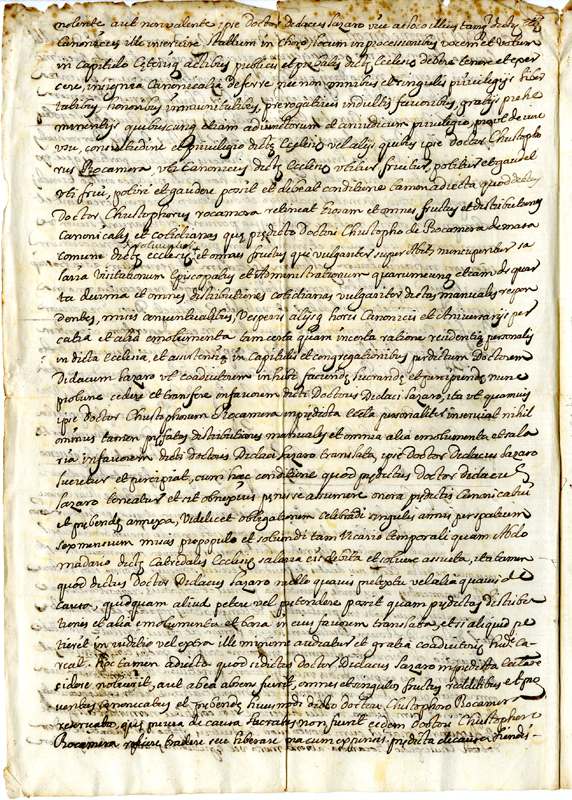 nolente aut non valente ipse Doctor Didacus Lazaro vice ac loco illius tamq dictus
Canonicus ille incersire stallum in choro locum in processionibus vocem et votum
in Capitulo actibus publicis et dictę Ecclesię debita tenere et exer
cere, insignia Canonicalia deferre nec non omnibus et singulis privilegijs liber
tatibus, honoribus immunitatibus, prerogativis indultis favoribus, gratijs prehe
minentijs quibuscunq etiam privilegio,
usu, consuetudine et privilegio dictę Ecclesię vel alijs, quibus ipse Doctor Christopho
rus Rocamora uti Canonicus dictę Ecclesię utitur fruitur, potitur et gaudet
uti frui, potiri et gaudere possit et debeat conditione tamen adiecta quod dictus
Doctor Christophorus rocamora retineat omnes fructus et distributiones
Canonicales et cotidianas que prędicto Doctori Christophoro de Rocamora de massa
comuni dictę ecclesię et omnes fructus qui vulgariter nuncupantur sa
laria Visitationum Episcopalis et Administrationum quarumcunq etiam de quar
ta decima et omnes distributiones cotidianas vulgariter dictas manuales respon
dentes, missis conventualibus, Vesperis alijsq horis Canonicis et Aniversarijs per
catia et alia emolumenta tam certa quam incerta ratione residentię personalis
in dicta Ecclesia, et assistentię in Capitulis et congregationibus per dictum Doctorem
Didacum Lazaro ut coadiutorem faciendę lucrandos et percipiendos nunc
pro tunc cedere et transferre in favorem dicti Doctoris Didaci Lazaro, ita ut quamvis
ipse Doctor Christophorum Rocamora in prędicta Eccla personaliter inserviat nihil
ominus tamen distributiones manuales et omnia alia emolumenta et sala
ria in favorem dicti doctoris Didaci Lazaro translata, ipse Doctor Didacus Lazaro
lucretur et percipiat, cum hac conditione quod prędictus Doctor Didacus
Lazaro teneatur et sit obnoxius assumere onera prędictis Canonicatui
et prebendę annexa, Videlicet obligationem celebrandi singulis annis
missas pro populo et solvendi tam Vicario temporali quam Abdo
madario dictę Catedralis Ecclesię salaria eis debita et solvere assueta, ita tamen
quod dictus Doctor Didacus Lazaro nullo quavis pretextu vel alia quavis de
causa, quidquam aliud petere vel pretendere possit quam prędictas distribu
tiones et alia emolumenta et bona in eius favorem translata, et si aliquid pe
tierit in iuditio vel extra ille minime audiatur et gratia coadiutorię
Hoc tamen adiecto quod si dictus Doctor Didacus Lazaro in prędicta Ecclesia re
sidere noluerit, aut ab ea absens fuerit, omnes et singulos fructus redditibus et pro
ventibus canonicatus et prebendę huiusmodi dicto Doctore Christophoro Rocamora
reservatos, quis causa non fuerit eidem Doctori Christophoro
Rocamora tradere seu liberare expensis prędicta de causa